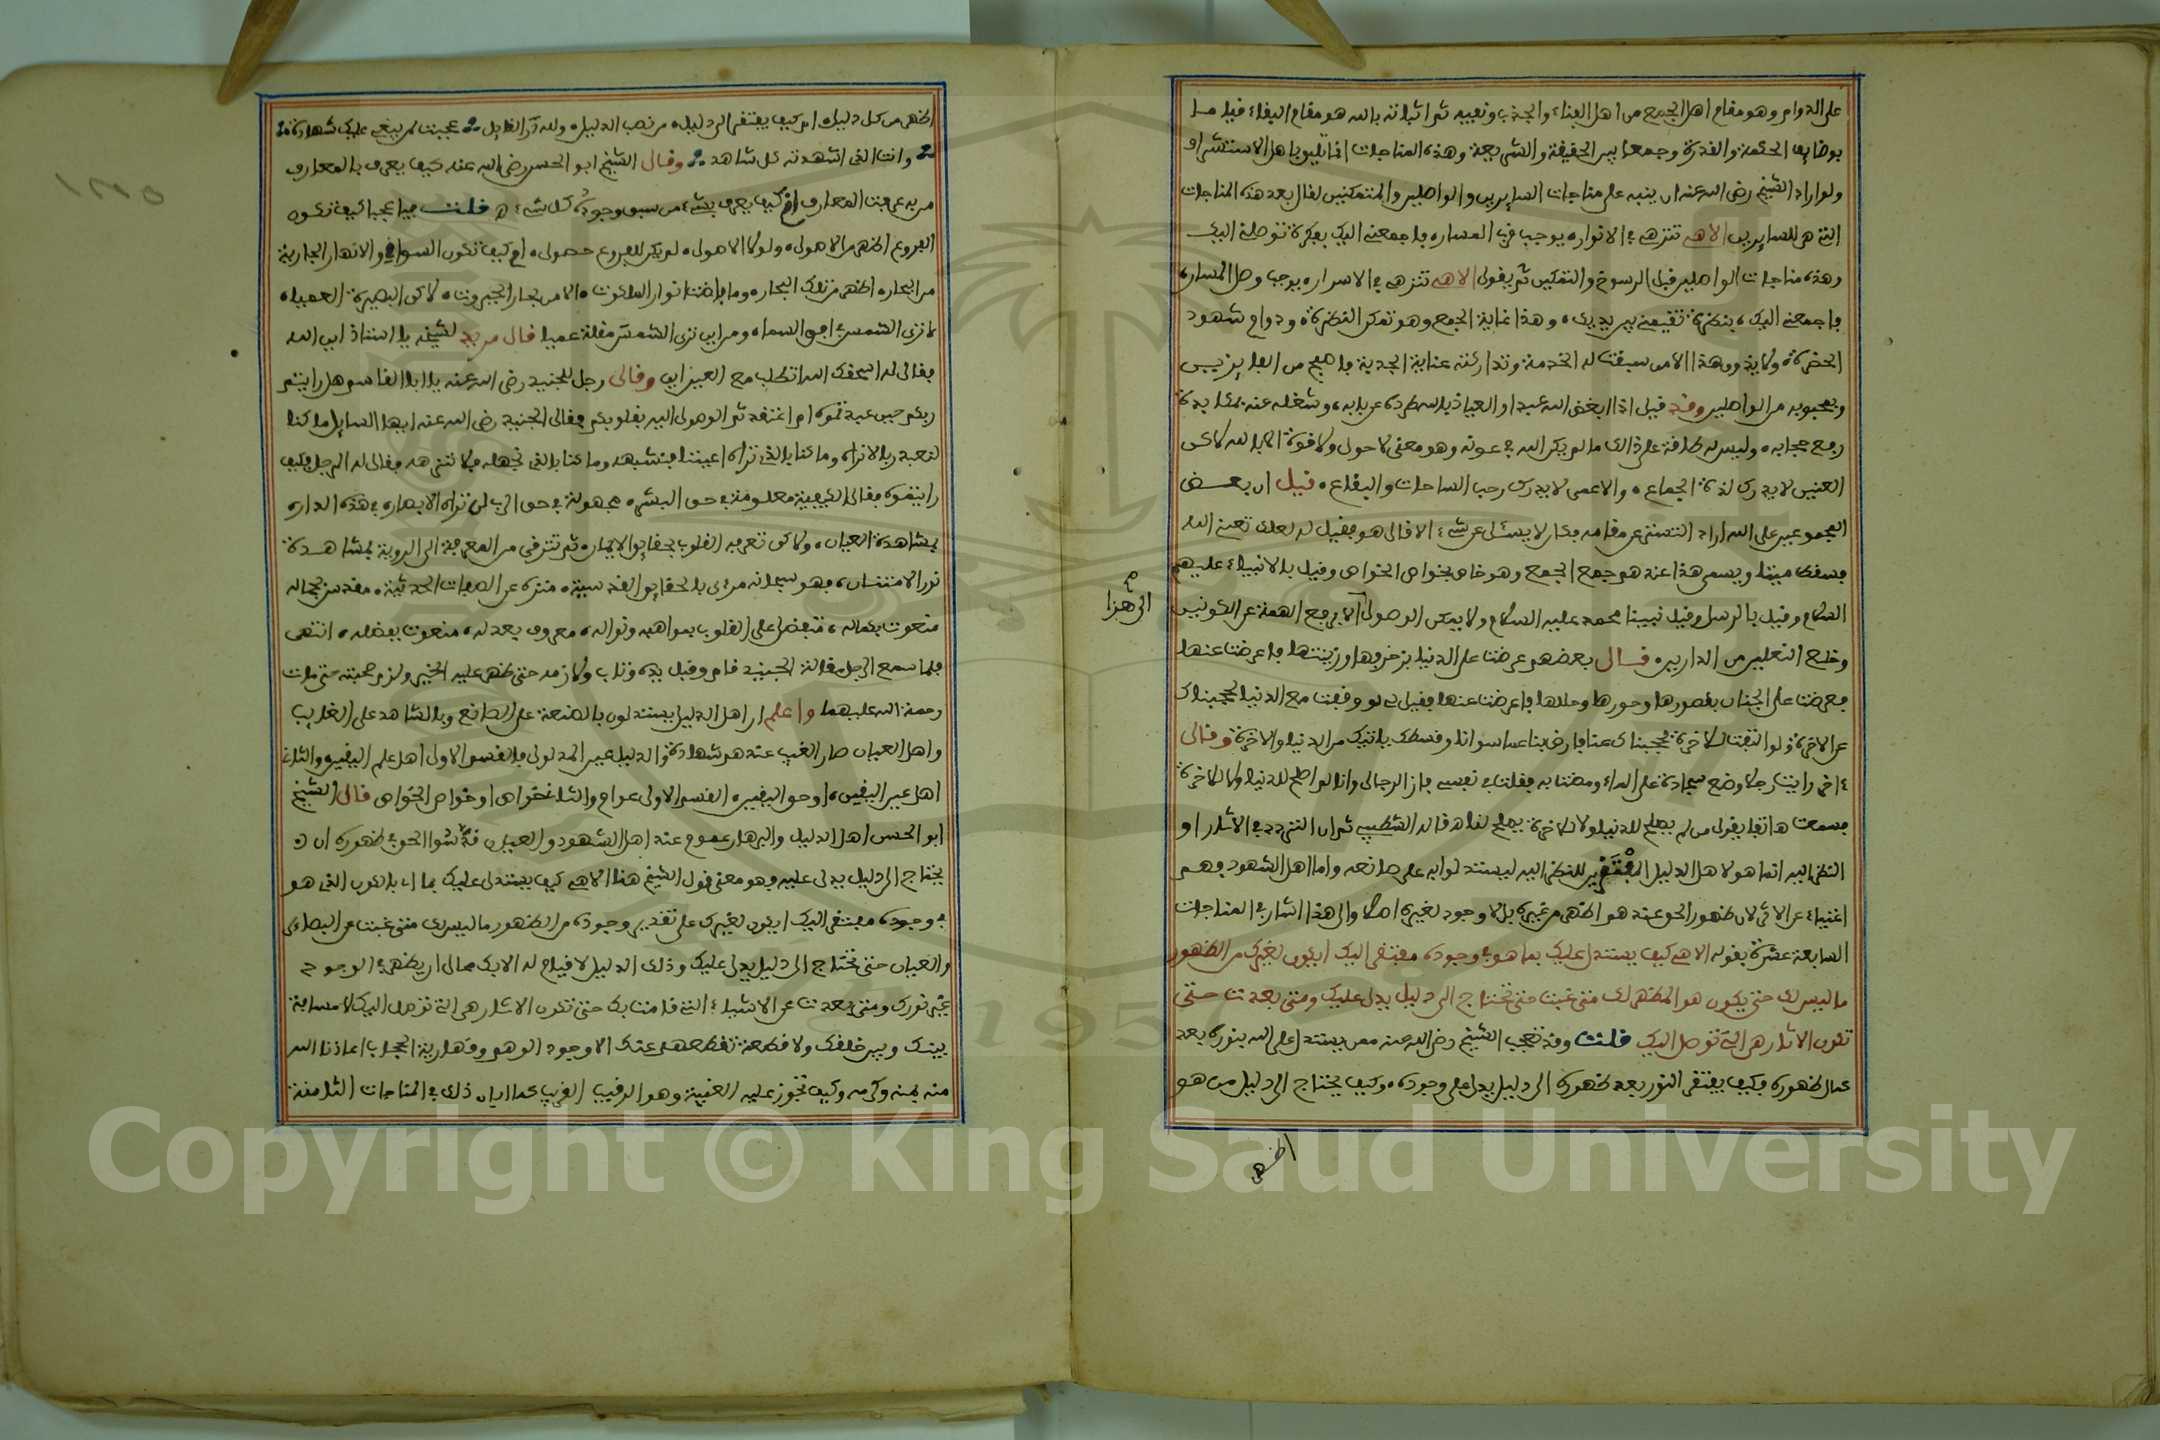 على الدوام وهو مقام اهل الجمع من اهل الفناء والجذب ونعيه ثم اثباته بالله هو مقام البقاء فيلما
بوظايف الحكمة والقدرة وجمعا بين الحقيقة والشريعة وهذه المناجات انما تليق باهل الاستشراف
ولو اراد الشيخ رضي الله عنه ان ينبه على مناجات السايرين والواصلين والمتمكنين لقال بعد هذه المناجات
التي هي للسايرين الاهي تنزهي في الانوار يوجب قرب المسار فاجمعني اليك بفكرة توصلني اليك
وهذه مناجات الواصلين قبل الرسوخ والتمكين ثم يقول الاهي تنزهي في الاسرار يوجب وصل المسار
فاجمعني اليك بنظرة تقيمني بين يديك وهذا غاية الجمع وهو تمكن النظرة ودوام شهود
الحضرة ولا يذوق هذا الا من سبقت له الخدمة وتداركته عناية الجذبة فاصبح من الفايزين
ومحبوبه من الواصلين وقد قيل اذا ابغض الله عبدا والعياذ بالله طرده عن بابه وشغله عنه بمكابدة
رفع حجابه وليس له طاقة على ذلك ما لم يكن الله في عونه وهو معنى لا حول ولا قوة الا بالله لاكن
العنين لا يدرك لذة الجماع والاعمى لا يدرك رحب الساحات والبقاع قيل ان بعض
المجموعين على الله اراد التستر عن مقامه فكان لا يسئل عن شيء الا قال هو فقيل له لعلك تعني الله
فسقط ميتا ويسمى هذا عندهم جمع الجمع وهو خاص بخواص الخواص وقيل بالانبياء عليهم
السلام وقيل بالرسل وقيل نبينا محمد عليه السلام ولا يمكن الوصول الا برفع الهمة عن الكونين
الى هذا
وخلع النعلين من الدارين قال بعضهم عرضت علي الدنيا بزخرفها وزينتها فاعرضت عنها
فعرضت علي الجنان بقصورها وحورها وحللها فاعرضت عنها فقيل لي لو وقفت مع الدنيا لحجبناك
عن الاخرة ولو التفت للاخرة لحجبناك عنا فارض بنا عما سوانا وقسطك ياتيك من الدنيا والاخرة وقال
اخر رايت رجلا وضع سجادة على الماء ومضى به فقلت في نفسي فاز الرجال وانا لم اصلح للدنيا ولا للاخرة
فسمعت هاتفا يقول من لم يصلح للدنيا ولا للاخرة يصلح لنا قاله الشطيبي ثم ان التردد في الاثار او
النظر اليه انما هو لاهل الدليل المفتقرين للنظر اليه ليستدلوا به على صانعه واما اهل الشهود فهم
اغنياء عن الاثر لان ظهور الحق عندهم اظهر من غيره بل لا وجود لغيره اصلا والى هذا اشار في المناجات
السابعة عشرة بقوله الاهي كيف يستدل عليك بما هو في وجوده مفتقر اليك ايكون لغيرك من الظهور
ما ليس لك حتى يكون هو المظهر لك متى غبت حتى تحتاج الى دليل يدل عليك ومتى بعدت حتى
تكون الاثار هي التي توصل اليك قلت وقد تعجب الشيخ رضي الله عنه ممن يستدل على الله بنوره بعد
كمال ظهوره فكيف يفتقر النور بعد ظهوره الى دليل يدل على وجوده وكيف يحتاج الى دليل من هو
اظهر
اظهر من كل دليل ام كيف يفتقر الى دليل من نصب الدليل ولله در القايل عجبت لمن يبغي عليك شهادة
وانت الذي اشهدته كل شاهد وقال الشيخ ابو الحسن رضي الله عنه كيف يعرف بالمعارف
من به عرفت المعارف ام كيف يعرف بشيء من سبق وجوده كل شيء قلت فيا عجبا كيف تكون
الفروع اظهر من الاصول ولولا الاصول لم يكن للفروع حصول ام كيف تكون السواقي والانهار الجارية
من البحار اظهر من تلك البحار وما فاضت انوار الملكوت الا من بحار الجبروت لاكن البصيرة العمياء
لا ترى الشمس في افق السماء ومن اين ترى الشمس مقلة عميا قال مريد لشيخه يا استاذ اين الله
فقال له اسحقك الله اتطلب مع العين اين وقال رجل للجنيد رضي الله عنه يا ابا القاسم هل رايتم
ربكم حين عبدتموه ام اعتقدتم الوصول اليه بقلوبكم فقال الجنيد رضي الله عنه ايها السايل ما كنا
لنعبد ربا لا نراه وما كنا بالذي نراه اعيننا فنشبهه وما كنا بالذي نجهله فلا ننزهه فقال له الرجل فكيف
رايتموه فقال الكيفية معلومة في حق البشر مجهولة في حق الرب لن تراه الابصار في هذه الدار
بمشاهدة العيان ولاكن تعرفه القلوب بحقايق الايمان ثم تترقى من المعرفة الى الروية بمشاهدة
نور الامتنان فهو سبحانه مرءي بالحقايق القدسية منزه عن الصفات الحدثية مقدس بجماله
منعوت بكماله متفضل على القلوب بمواهبه ونواله معروف بعدله منعوت بفضله انتهى
فلما سمع الرجل مقالة الجنيد قام وقبل يده وتاب ولازمه حتى ظهر عليه الخير ولزم صحبته حتى مات
رحمة الله عليهما واعلم ان اهل الدليل يستدلون بالصنعة على الصانع وبالشاهد على الغايب
واهل العيان صار الغيب عندهم شهادة والدليل عين المدلول فالقسم الاول اهل علم اليقين والثاني
اهل عين اليقين او حق اليقين القسم الاول عوام والثاني خواص او خواص الخواص قال الشيخ
ابو الحسن اهل الدليل والبرهان عموم عند اهل الشهود والعيان قدسوا الحق في ظهوره ان
يحتاج الى دليل يدل عليه وهو معنى قول الشيخ هنا الاهي كيف يستدل عليك بما اي بالكون الذي هو
في وجوده مفتقر اليك ايكون لغيرك على تقدير وجوده من الظهور ما ليس لك متى غبت عن البصاير
والعيان حتى تحتاج الى دليل يدل عليك وذلك الدليل لا قيام له الا بك محال ان يظهر في الوجود
غير نورك ومتى بعدت عن الاشياء التي قامت بك حتى تكون الاثار هي التي توصل اليك لا مسافة
بينك وبين خلقك ولا قطعة تقطعهم عنك الا وجود الوهم وقهارية الحجاب اعاذنا الله
منه بمنه وكرمه وكيف تجوز عليه الغيبة وهو الرقيب القريب كما ابان ذلك في المناجات الثامنة
Copyright © King Saud University
1957